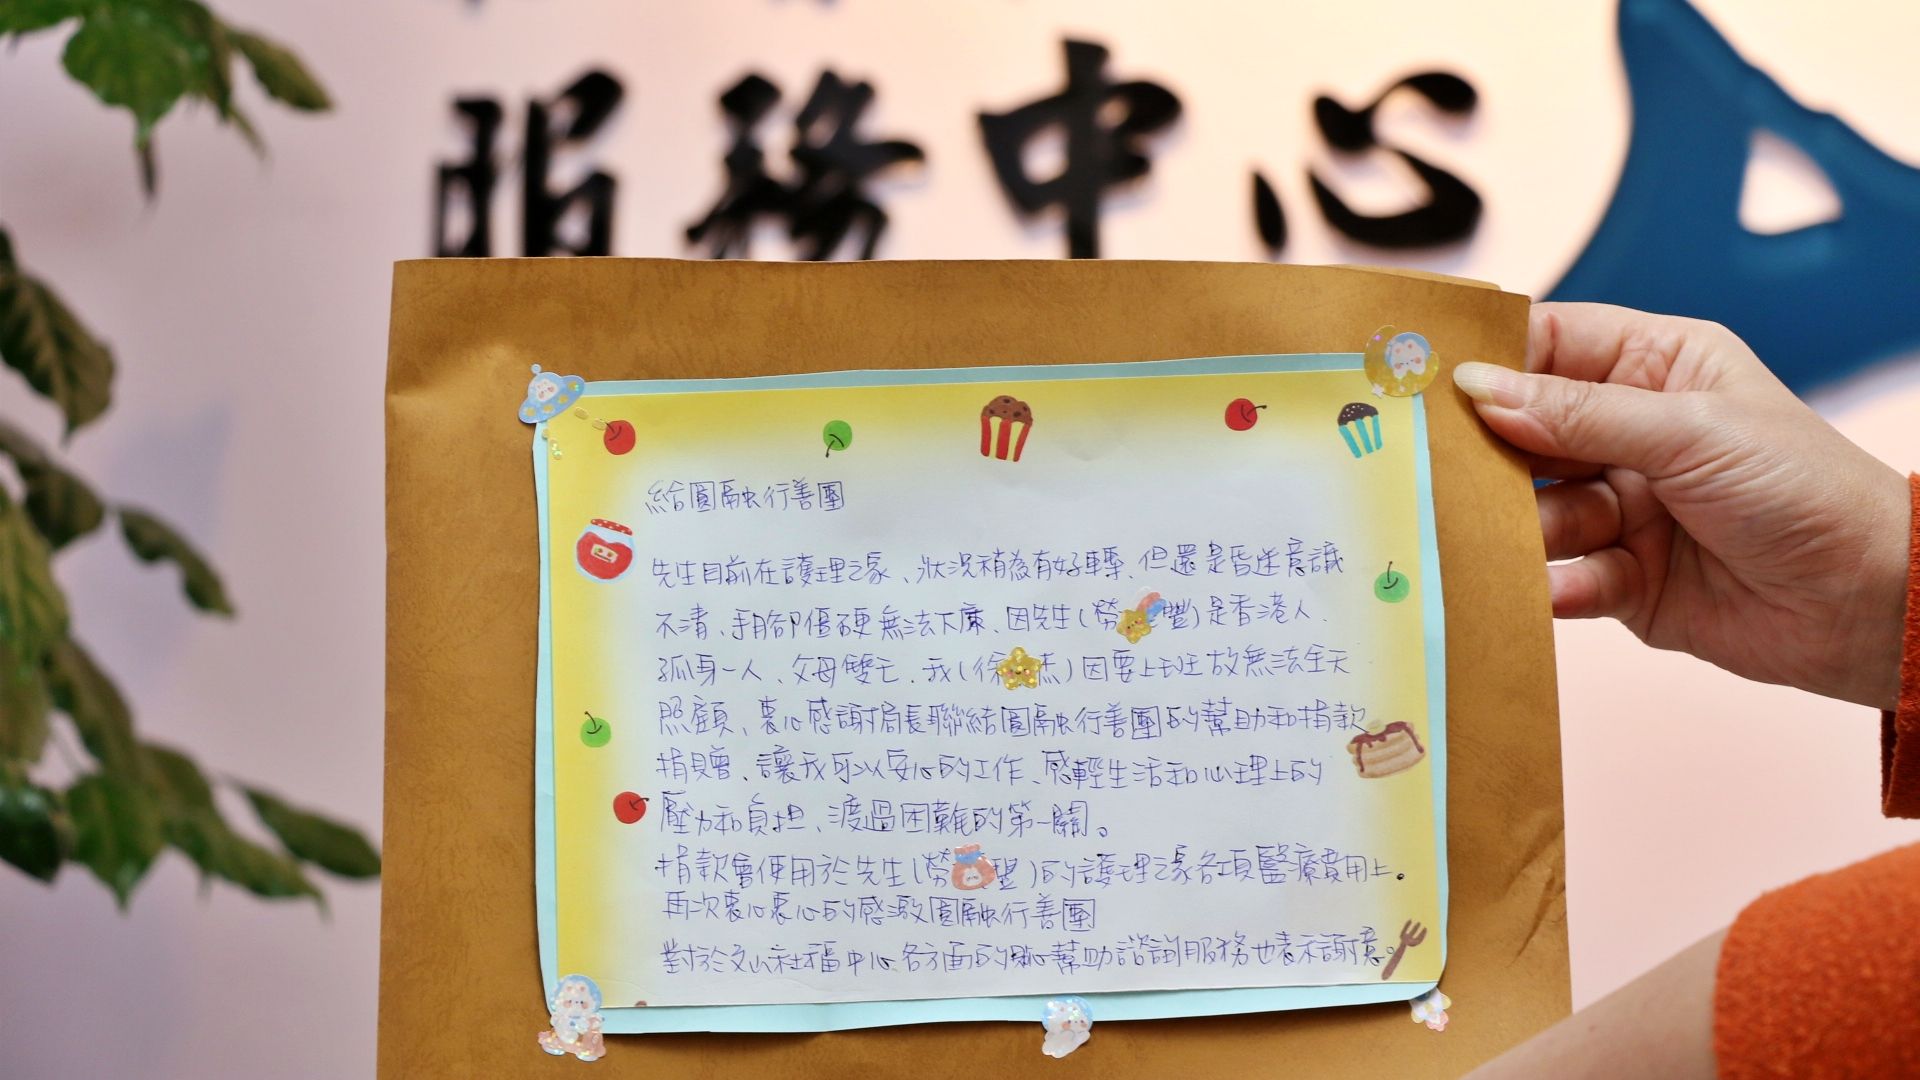 服務中心
給圓融行善團
先生目前在護理之家、狀況稍為有好轉、但還是昏迷意識
不清、手腳僵硬無法下床、因先生(勞豐)是香港人、
孤身一人、父母雙亡、我(徐杰)因要上班故無法全天
照顧、衷心感謝局長聯結圓融行善團的幫助和捐款
捐贈、讓我可以安心的工作、感輕生活和心理上的
壓力和負担、渡過困難的第一關。
捐款會使用於先生(勞豐)的護理之家各項醫療費用上。
再次衷心衷心的感激圓融行善團
對於文山社福中心各方面的關心幫助諮詢服務也表示謝意。